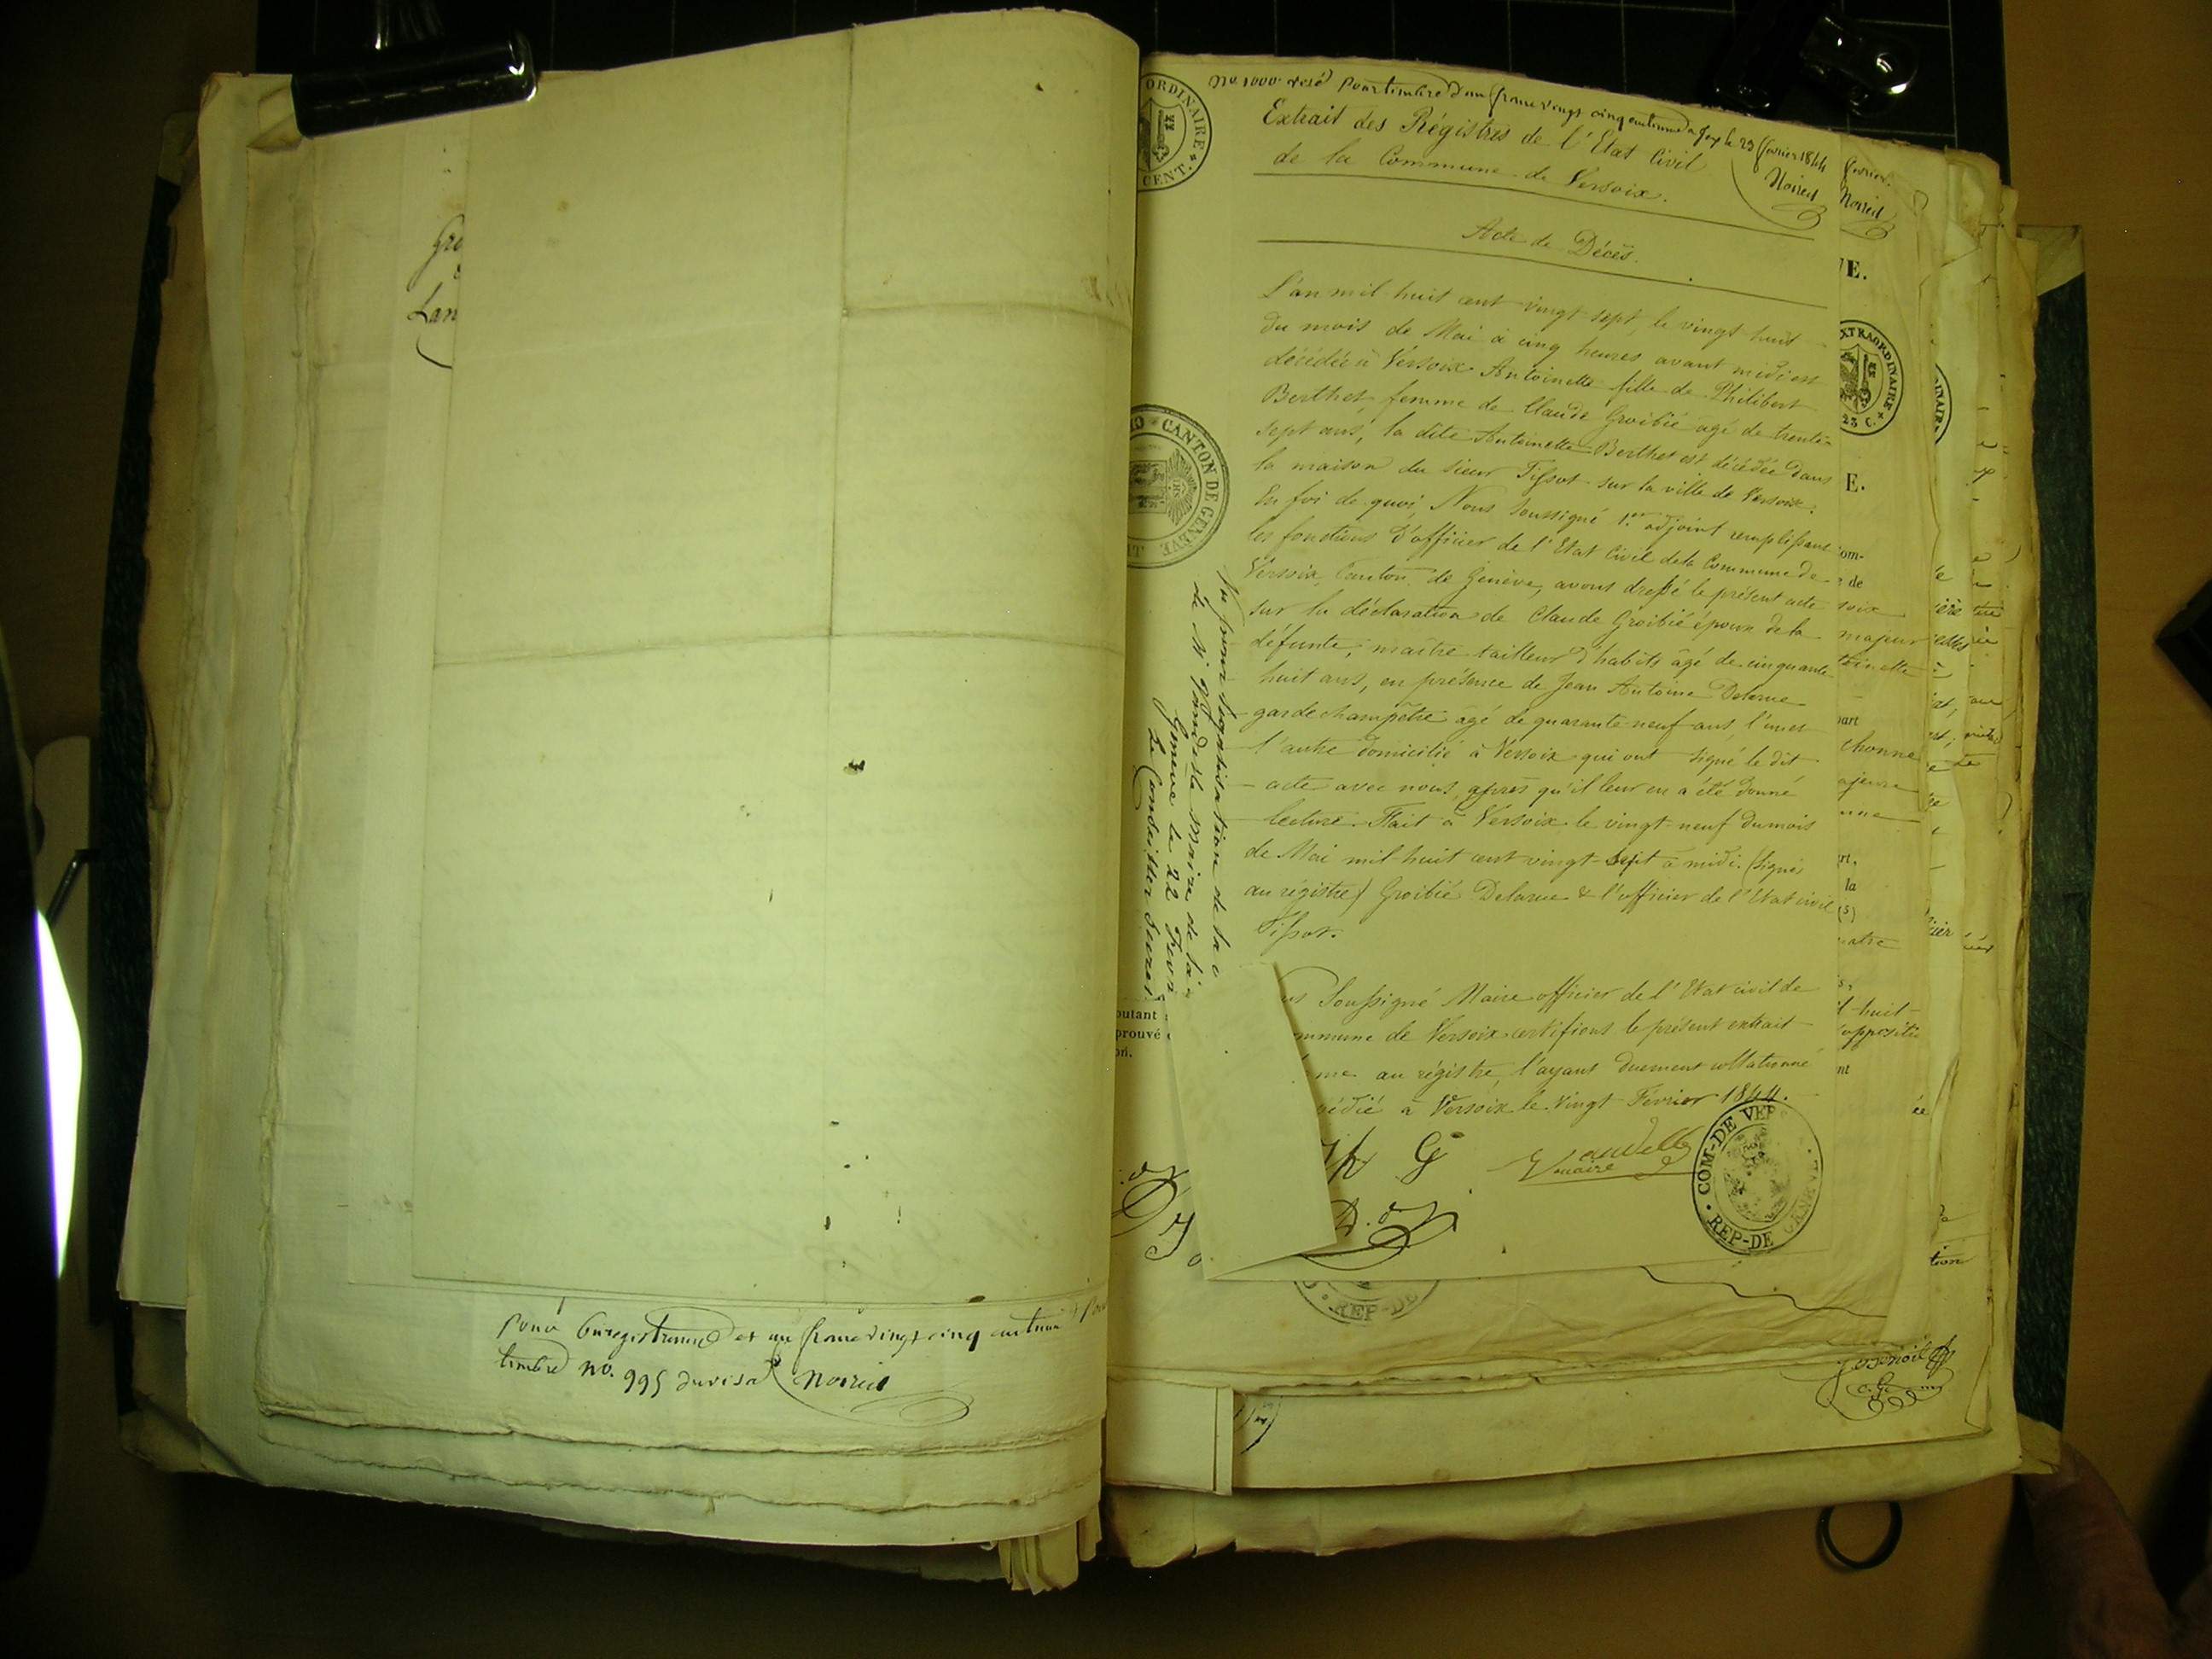 Gro
Lan
pour Enregistrement et un franc vingt cinq centimes pour
timbre no. 995 du visa Noired
ORDINAIRE
CENT.
No 1000. visé pour timbre d'un franc vingt cinq centimes a Gex le 23 février 1844
Noired
février.
Noired
Extrait des Régistres de l'Etat Civil
de la Commune de Versoix.
Acte de Décès.
L'an mil huit cent vingt sept, le vingt huit
du mois de Mai à cinq heures avant midi est
décédée à Versoix Antoinette fille de Philibert
Berthet, femme de Claude Groibié agé de trente
sept ans, la dite Antoinette Berthet est décédée dans
la maison du sieur Tissot sur la ville de Versoix.
En foi de quoi, Nous soussigné 1er adjoint remplissant
les fonctions d'officier de l'Etat Civil de la Commune de
Versoix, Canton de Genève, avons dressé le présent acte
sur la déclaration de Claude Groibié époux de la
défunte, maître tailleur d'habits âgé de cinquante
huit ans, en présence de Jean Antoine Delarue
garde champêtre âgé de quarante neuf ans, l'un et
l'autre domicilié à Versoix qui ont signé le dit
acte avec nous, après qu'il leur en a été donné
lecture. Fait à Versoix le vingt neuf du mois
de Mai mil huit cent vingt sept à midi. (Signé
au régistre) Groibié Delarue & l'officier de l'Etat civil
Tissot.
us Soussigné Maire officier de l'Etat civil de
mmune de Versoix certifions le présent extrait
me au régistre, l'ayant duement collationné
pédié à Versoix le vingt Février 1844.
G
maire
COM-DE VER
REP-DE GENEVE
CANTON DE GENÈVE
Vu pour légalisation de la
de Mr Grandelle maire de
Genève le 22 Fevr
Le Conseiller Secret
outant
prouvé
on.
VE.
EXTRAORDINAIRE
25 C.
E.
om-
e de
soix
majeur
toinette
part
chonne
ajeure
nne
rt,
la
(5)
atre
s,
il huit
opposition
nt
REP-DE
tion